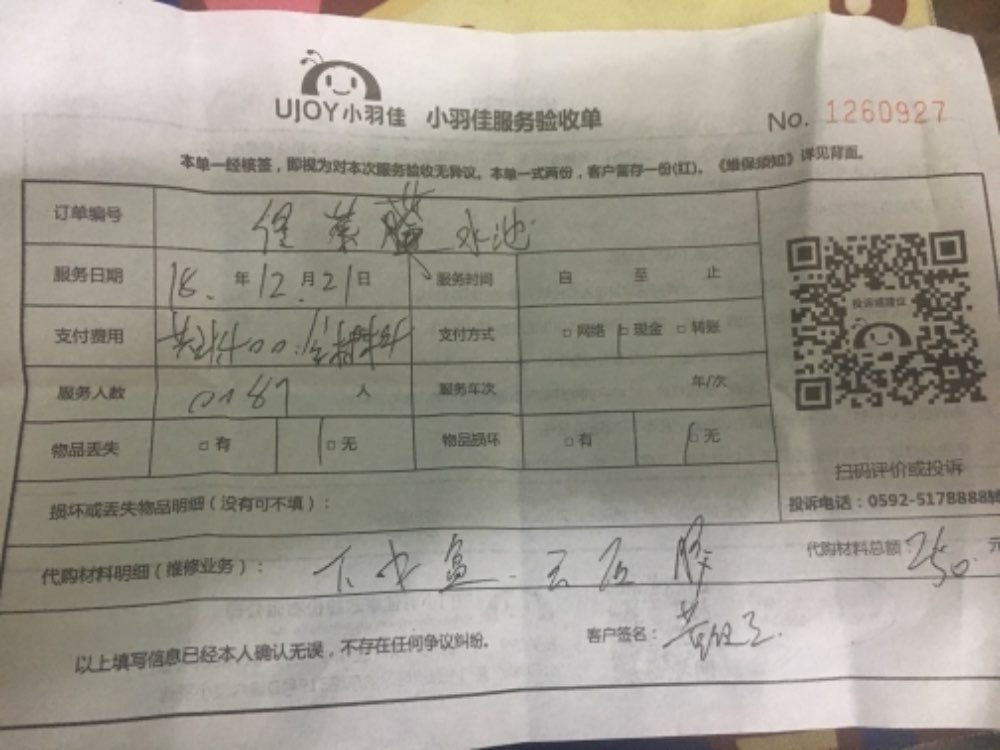 UJOY小羽佳 小羽佳服务验收单 No. 1260927
本单一经核签，即视为对本次服务验收无异议。本单一式两份，客户留存一份(红)。《维保须知》详见背面。
订单编号 水池
服务日期 18. 年 12. 月 21 日 服务时间 自 至 止
支付费用 支付方式 □ 网络 □ 现金 □ 转账
服务人数 0187 人 服务车次 年/次
物品丢失 □ 有 □ 无 物品损坏 □ 有 □ 无
投诉或建议
扫码评价或投诉
投诉电话：0592-5178888转
损坏或丢失物品明细（没有可不填）：
代购材料明细（维修业务）： 下水盆 云石胶 代购材料总额：250 元
以上填写信息已经本人确认无误，不存在任何争议纠纷。 客户签名：